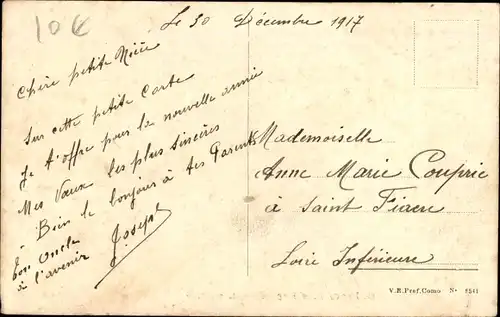 10 €
Le 30 Décembre 1917
Chère petite Nièce
Sur cette petite Carte
Je t'offre pour la nouvelle année
Mes Vœux les plus sincères
Bein le bonjour à tes Parents
Ton Oncle
à l'avenir
Joseph
Mademoiselle
Anne Marie Couprie
à Saint Fiacre
Loire Inférieure
V.E.Pref.Como N°